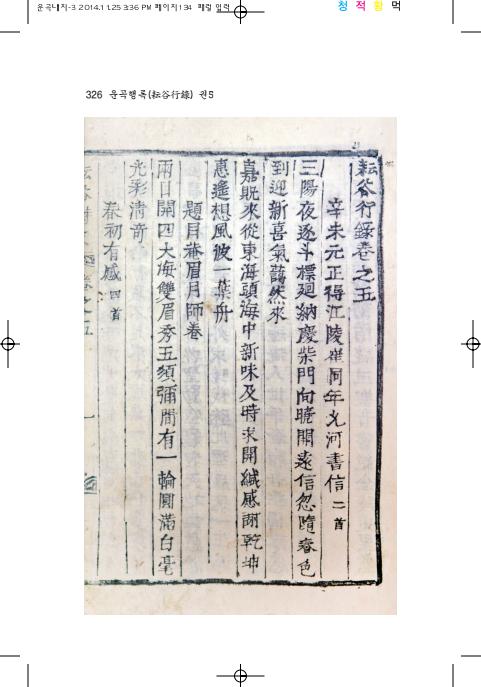 운곡내지-3 2014.11.25 3:36 PM 페이지134 매립 입력
청 적 황 먹
326 운곡행록(耘谷行錄) 권5
耘谷行錄卷之五
辛未元正得江陵崔同年允河書信 二首
三陽夜逐斗標廻納慶柴門向曉開遠信忽隨春色
到迎新喜氣藹然來
嘉貺來從東海頭海中新味及時求開緘感謝乾坤
惠遙想風波一葉舟
題月菴眉月師卷
兩目開四大海雙眉秀五須彌間有一輪圓滿白毫
光彩淸奇
春初有感 四首